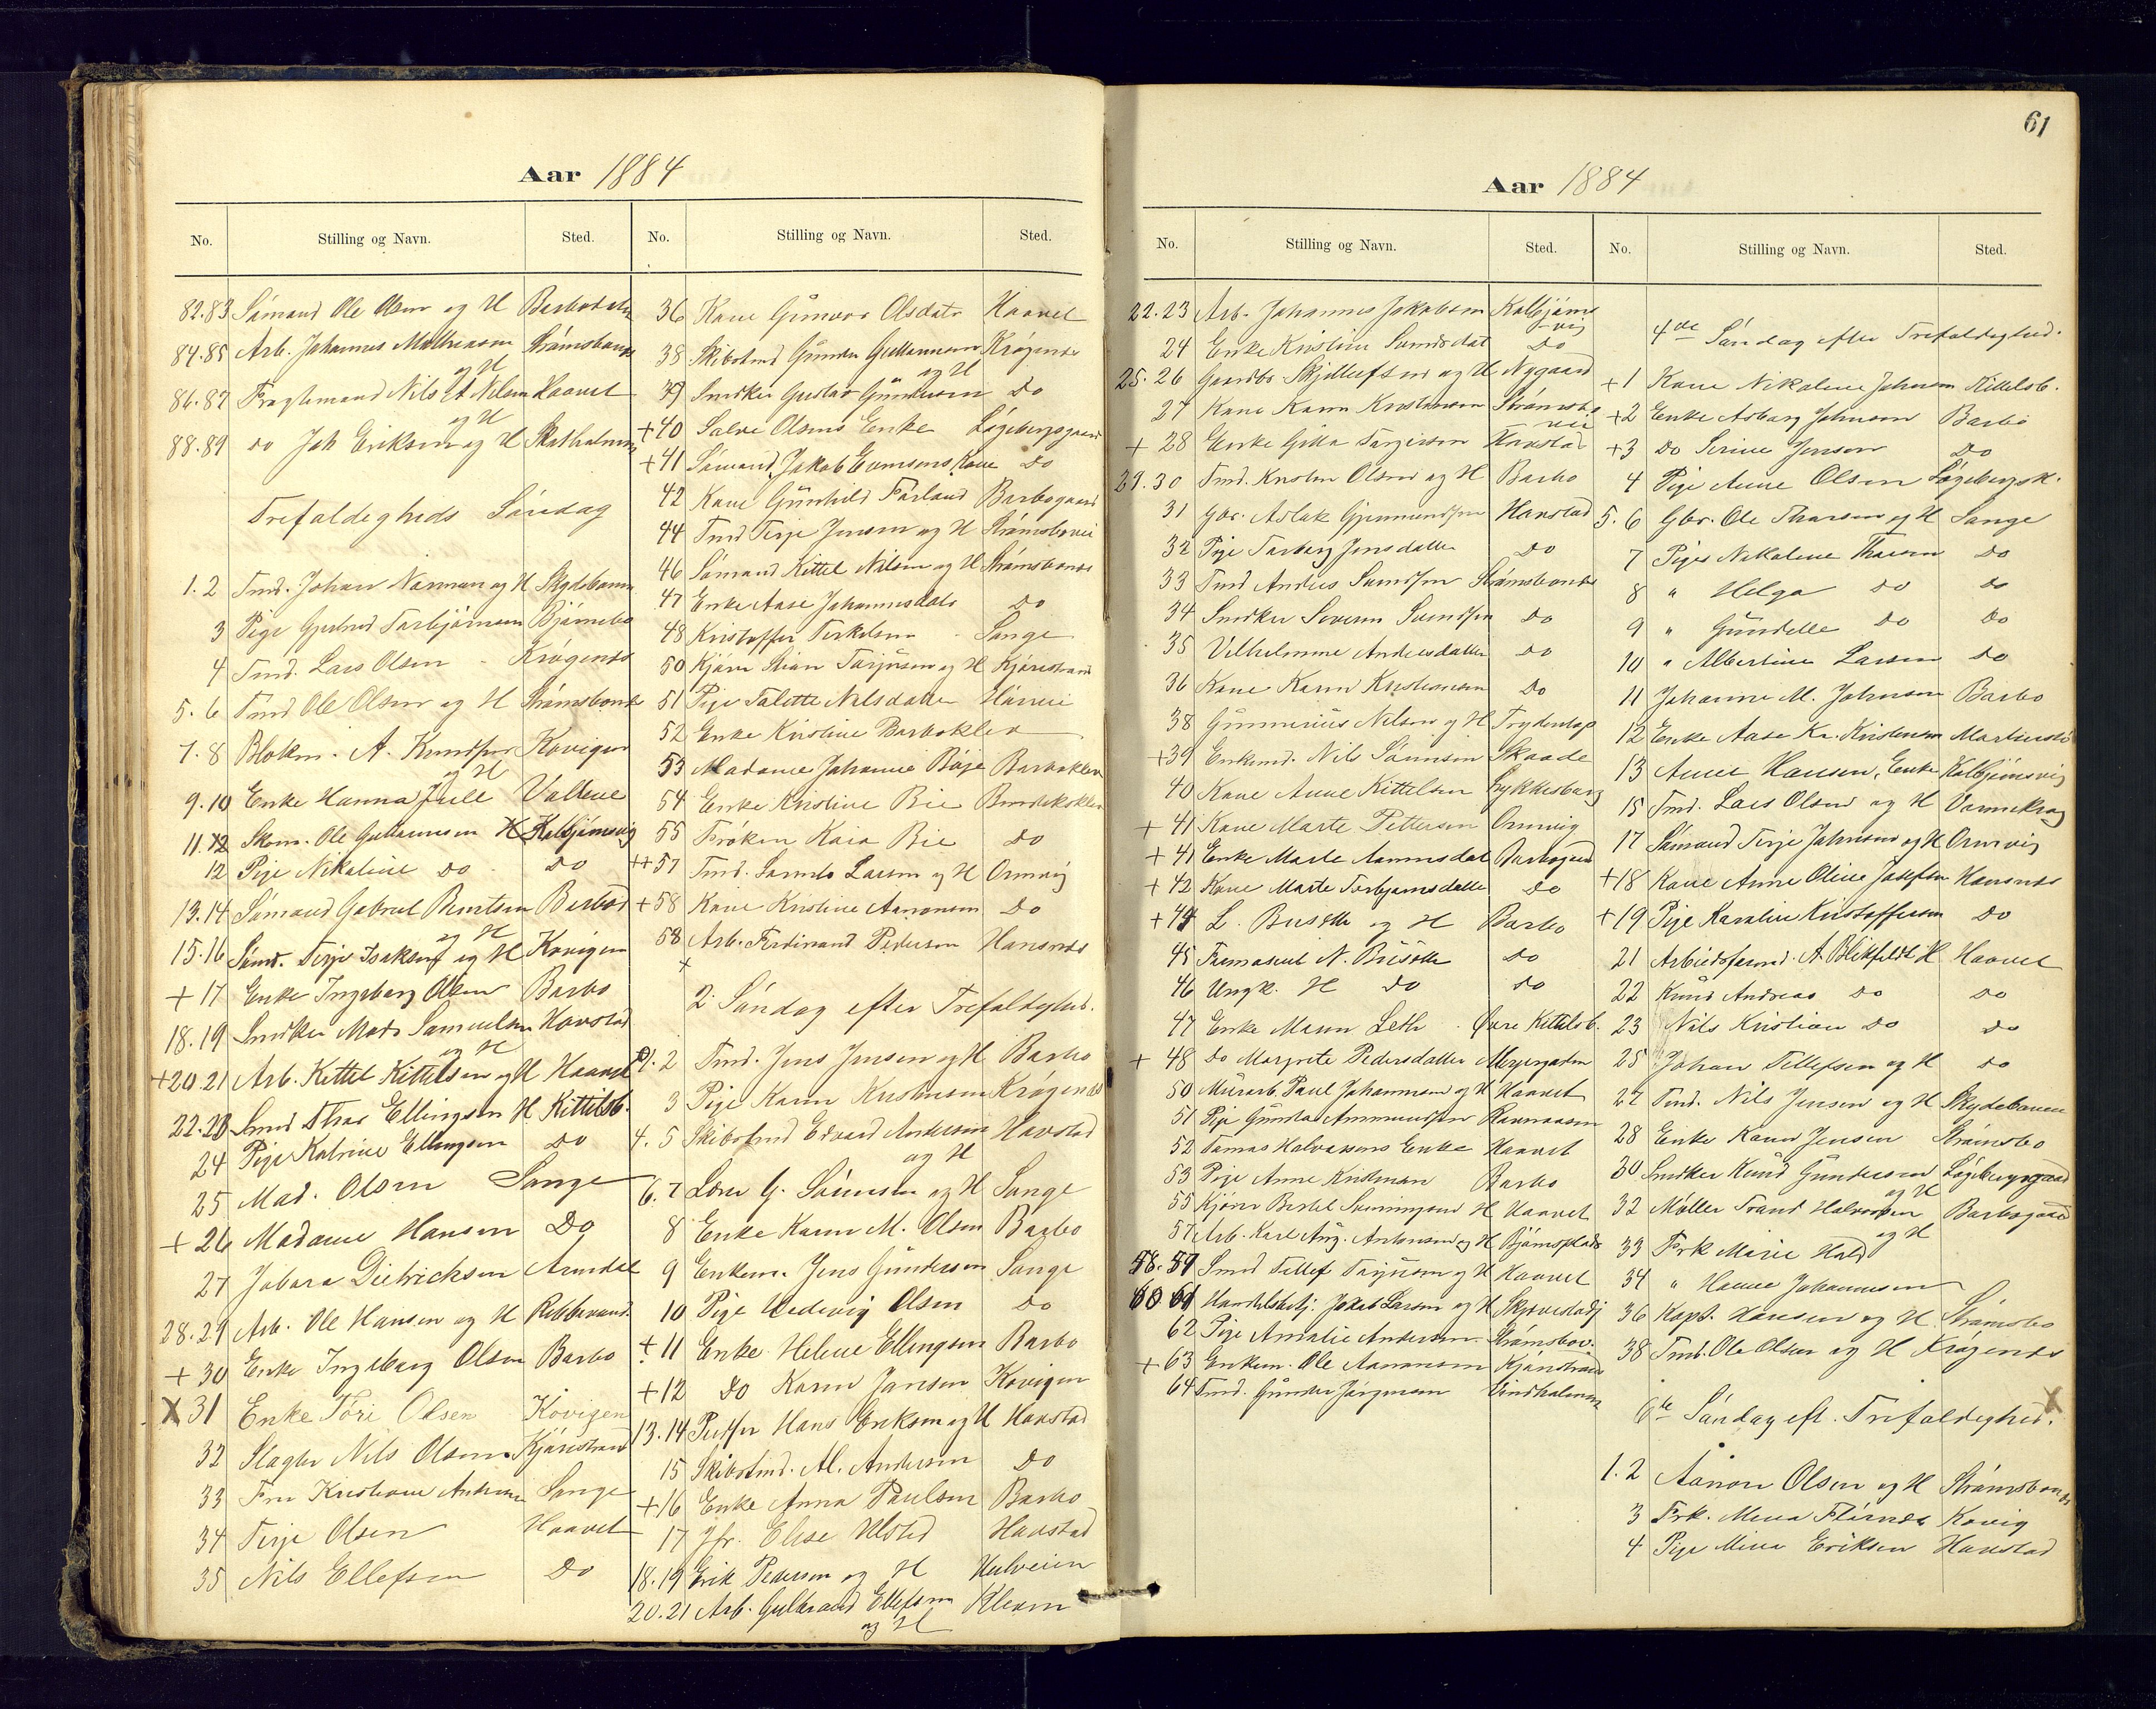 61
Aar 1884
No. Stilling og Navn. Sted.
82.83 Sömand Ole Olsen og H Barbodalen
84.85 Arb. Johannes Mathiesen og H Strömsbonæs
86.87 Fragtemand Nils A Nilsen og H Haavet
88.89 do Joh Eriksen og H Skatholmen
Trefoldigheds Söndag
1.2 Tmd. Johan Norman og H Skydebanen
3 Pige Gjertrud Torbjörnsen Björnebo
4 Tmd. Lars Olsen Krögenæs
5.6 Tmd Ole Olsen og H Strömsbonæs
7.8 Blokm. A. Knudsen og H Kovigen
9.10 Enke Hanna Juell Vollene
11.12 Skom. Ole Gulliansen H Kolbjörnsvig
12 Pige Nikoline Do Do
13.14 Sömand Gabriel Berntsen og H Barbod
15.16 Sömd. Terje Isaksen og H Kovigen
+ 17 Enke Ingeborg Olsen Barbo
18.19 Snedker Mads Samuelsen og H Havstad
+20.21 Arb. Kittel Kittelsen og H Haavet
22.23 Smed Thor Ellingsen H. Kittelsb.
24 Pige Katrine Ellingsen Do
25 Mad. Olsen Songe
+ 26 Madame Hansen Do
27 Dietrichsen Arendal
28.29 Arb. Ole Hansen og H
+ 30 Enke Ingeborg Olsen Barbo
X 31 Enke Tori Olsen Kovigen
32 Slagter Nils Olsen Kjöristrand
33 Fru Kristiane Andersen Songe
34 Terje Olsen Haavet
35 Nils Ellefsen Do
No. Stilling og Navn. Sted.
36 Kone Gunvor Olsdatr Haavet
38 Skibstmd Gunder Gulliansen og H Krögenæs
39 Snedker Gustav Gundersen Do
+40 Salve Olsens Enke Lögebergsgaard
+41 Sömand Jakob Evensens Kone Do
42 Kone Gunhild Förland Barbogaard
44 Tmd Terje Jensen og H Strömsbovei
46 Sömand Kittel Nilsen og H Strömsbonæs
47 Enke Aase Johannesdatr Do
48 Kristoffer Terkelsen Songe
50 Kjörer Stian Terjesen og H Kjöristrand
51 Pige Talette Nilsdatter
52 Enke Kristine Barbokleven
53 Madame Johanne Böje Barbokleven
54 Enke Kristine Bie
55 Fröken Kaia Bie Do
++57 Tmd. Larsen og H Ormvig
+58 Kone Kristine Aanonsen Do
58 Arb. Ferdinand Pedersen Hansnæs
+
2. Söndag efter Trefoldighed.
1.2 Tmd. Jens Jensen og H Barbo
3 Pige Karen Kristensen Krögenæs
4.5 Skibstmd Edvard Andersen og H Havstad
6.7 G. Sörensen og H Songe
8 Enke Karen M. Olsen Barbo
9 Enkem. Jens Gundersen Songe
10 Pige Hedevig Olsen Do
+ 11 Enke Helene Ellingsen Barbo
+12 Do Karen Jansen Kovigen
13.14 Hans Eriksen og H Havstad
15 Skibstmd. Al. Andersen Do
+16 Enke Anna Paulsen Barbo
17 Jfr. Elise Ulsted Havstad
18.19 Erik Pedersen og H
20.21 Arb. Gulbrand Ellefsen og H Kleven
Aar 1884
No. Stilling og Navn. Sted.
22.23 Arb. Johannes Jakobsen Kolbjörnsvig
24 Enke Kristine Svendsdat Do
25.26 Gaardbr. Skjellefsen og H Nygaard
27 Kone Karen Kristensen Strömsbovei
+ 28 Enke Gitta Terjesen Havstad
29.30 Tmd. Kristen Olsen og H Barbo
31 Gbr. Aslak Gjermundsen Havstad
32 Pige Torborg Jensdatter Do
33 Tmd Anders Svendsen Strömsbonæs
34 Snedker Severin Svendsen Do
35 Vilhelmine Andersdatter Do
36 Kone Karen Kristensen Do
38 Gunnerius Nilsen og H
+39 Enkemd. Nils Sörensen Skaade
40 Kone Anne Kittelsen Lykkesborg
+ 41 Kone Marte Pettersen Ormvig
+ 41 Enke Marte Aanonsdat Barbogaard
+ 42 Kone Marte Torbjornsdatter Do
+44 L. og H Barbo
45 N. Do
46 Ungk. H do Do
47 Enke Maren Leth Övre Kittelsb.
+ 48 Do Margrete Pedersdatter
50 Murarb. Paul Johannesen og H Haavet
51 Pige Gunda Ammundsen
52 Tomas Halvorsens Enke Haavet
53 Pige Anne Kristensen Barbo
55 Kjörer Bertel H Haavet
57 Arb. Karl Aug. Antonsen og H Björnsplads
58.59 Smed Tellef Terjesen og H Haavet
60 61 Handelsbetj. Jakob Larsen og H
62 Pige Amalie Andersen Strömsbov.
+ 63 Enkem. Ole Aanonsen Kjöristrand
64 Tmd. Gunder Jörgensen Vindholmen
No. Stilling og Navn. Sted.
4de Söndag efter Trefoldighed.
+1 Kone Nikoline Johnsen Kittelsb.
+2 Enke Asborg Johnsen Barbo
+3 Do Serine Jensen Do
4 Pige Anne Olsen Lögebergsk.
5.6 Gbr. Ole Thorsen og H Songe
7 Pige Nikoline Thorsen Do
8 " Helga do do
9 " Gundelle do Do
10 " Albertine Larsen Do
11 Johanne M. Johnsen Barbo
12 Enke Aase Kr. Kristensen
13 Anne Hansen, Enke Kolbjörnsvig
15 Tmd. Lars Olsen og H Vannekrog
17 Sömand Terje Johnsen og H Ormvig
+18 Kone Anne Oline Josefsen Hansnæs
+19 Pige Karoline Kristoffersen Do
21 Arbeidsformd. A Blikfeldt H Haavet
22 Knud Andreas Do Do
23 Nils Kristian Do Do
25 Johan Tellefsen og H Do
27 Tmd. Nils Jensen og H Skydebanen
28 Enke Karen Jensen Strömsbo
30 Snedker Knud Gundersen og H Lögebergsgaard
32 Möller Trond Halvorsen og H Barbogaard
33 Frk Marie Hald
34 " Hanne Johannesen
36 Kapt. Hansen og H Strömsbo
38 Tmd. Ole Olsen og H Krögenæs
6te Söndag eft. Trefoldighed. X
1.2 Aanon Olsen og H Strömsbonæs
3 Frk. Mina Kovig
4 Pige Mina Eriksen Havstad